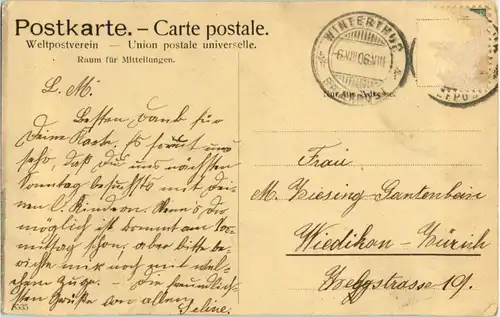 Postkarte. – Carte postale.
Weltpostverein — Union postale universelle.
Raum für Mitteilungen.
Nur für Adresse.
WINTERTHUR
6.VIII.06.VIII
BRIEFTR.
L. M.
Besten Dank für
Deine Karte. Es freut uns
sehr, daß Du uns nächsten
Sonntag besuchst mit Dei-
nen l. Kindern. Wenn's Dir
möglich ist kommt am Vor-
mittag schon, aber bitte be-
richte mir noch mit wel-
chem Zuge. — Die freundlich-
sten Grüße von allen
Seline.
Frau
M. Ziesing-Gantenbein
Wiedikon-Zürich
Zelgstrasse 19.